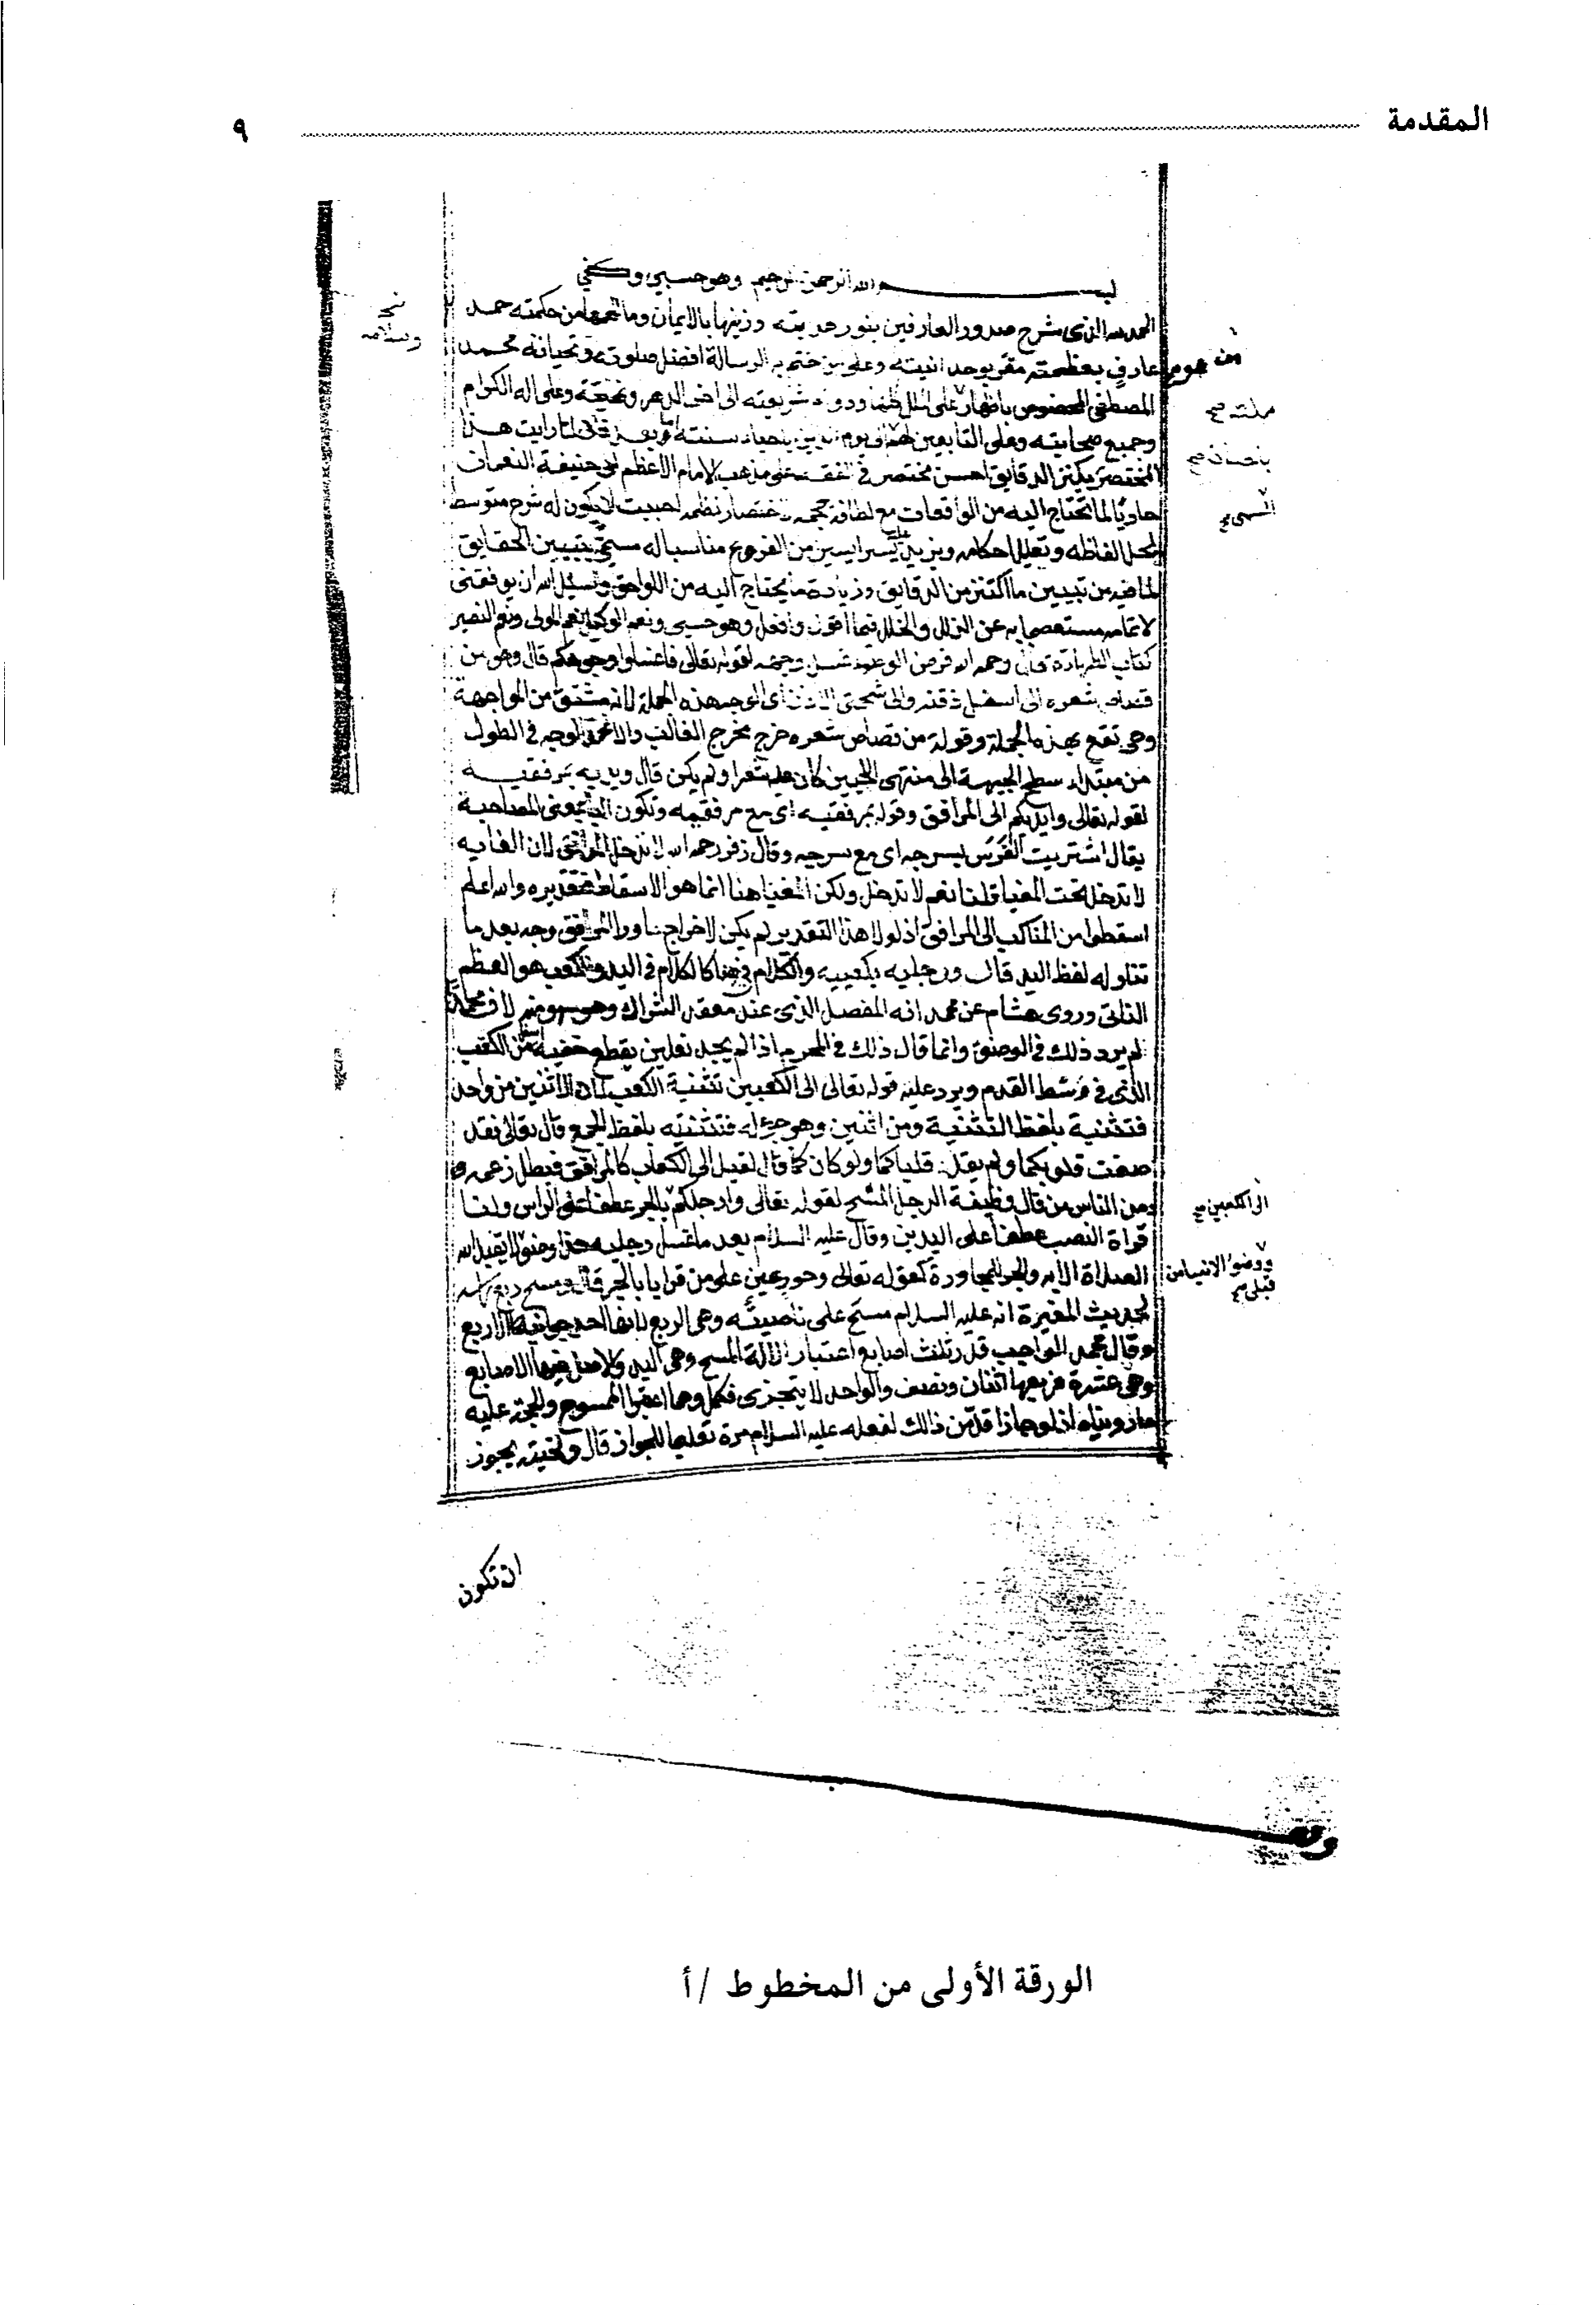 المقدمة ٩
بسم الله الرحمن الرحيم وهو حسبي وكفي
الحمد لله الذي شرح صدور العارفين بنور هدايته وزينها بالايمان وما من حكمته حمد
عارف بعظمته مقر بوحدانيته وعلى من ختم به الرسالة افضل صلوته وتحياته محمد
وسلامه
المصطفى المخصوص باظهار على الملل كلها ودوام شريعته الى اخر الدهر وعلى اله الكرام
ملته صح
وجميع صحابته وعلى التابعين لهم الى يوم الدين باحياء سنته اما بعد فاني لما رايت هذا
باحسان صح
المختصر بكنز الدقايق احسن مختصر في الفقه على مذهب الامام الاعظم ابي حنيفة النعمان
المسمى صح
حاويا لما تحتاج اليه من الواقعات مع لطافة حجمه لاختصار نظمه احببت ان يكون له شرح متوسط
يحل الفاظه ويعلل احكامه ويزيد عليه يسيرا من الفروع مناسبا له مسمى بتبيين الحقايق
لما فيه من تبيين ما اكتنز من الدقايق وزيادة ما يحتاج اليه من اللواحق واسئل الله ان يوفقني
لاتمامه مستعصما به عن الزلل والخلل فيما اقول وافعل وهو حسبي ونعم الوكيل نعم المولى ونعم النصير
كتاب الطهارة قال رحمه الله فرض الوضوء غسل وجهه لقوله تعالى فاغسلوا وجوهكم قال وهو من
قصاص شعره الى اسفل ذقنه والى شحمتي الاذن اي الوجه هذه الجملة لانه مشتق من المواجهة
وهي تقع بهذه الجملة وقوله من قصاص شعره خرج مخرج الغالب والا فحد الوجه في الطول
من مبتداء سطح الجبهة الى منتهى اللحيين كان عليه شعر او لم يكن قال ويديه بمرفقيه
لقوله تعالى وايديكم الى المرافق وقوله بمرفقيه اي مع مرفقيه وتكون الباء بمعنى المصاحبة
يقال اشتريت الفرس بسرجه اي مع سرجه وقال زفر رحمه الله لا تدخل المرافق لان الغاية
لا تدخل تحت المغيا قلنا نعم لا تدخل ولكن المغيا هنا انما هو الاسقاط فتقديره والله اعلم
اسقطوا من المناكب الى المرافق اذ لولا هذا التقدير لم يكن لاخراج ما وراء المرافق وجه بعد ما
تناوله لفظ اليد قال ورجليه بكعبيه والكلام في هذا كالكلام في اليد والكعب هو العظم
الناتي وروى هشام عن محمد انه المفصل الذي عند معقد الشراك وهو سهو منه لان محمدا
لم يرد ذلك في الوضوء وانما قال ذلك في المحرم اذا لم يجد نعلين يقطع خفيه اسفل من الكعب
الذي في وسط القدم ويرد عليه قوله تعالى الى الكعبين تثنية الكعب لان الاثنين من واحد
فتثنية بلفظ التثنية ومن اثنين وهو جزء له فتثنيته بلفظ الجمع قال تعالى فقد
صغت قلوبكما ولم يقل قلباكما ولو كان كما قال لقيل الى الكعاب كالمرافق فبطل زعمه
ومن الناس من قال وظيفة الرجل المسح لقوله تعالى وارجلكم بالجر عطفا على الراس ولنا
الى الكعبين صح
قراة النصب عطفا على اليدين وقال عليه السلام بعد ما غسل رجليه هذا وضوء لا يقبل الله
الصلاة الا به والجر للمجاورة كقوله تعالى وحور عين على من قرايا بالجر قال ومسح ربع راسه
ووضوء الانبياء من قبلي صح
لحديث المغيرة انه عليه السلام مسح على ناصيته وهي الربع لانها احد جوانبه الاربع
وقال محمد الواجب قدر ثلث اصابع اعتبارا لالة المسح وهي اليد والاصل فيها الاصابع
وهي عشرة فربعها اثنان ونصف والواحد لا يتجزى فكمل وهما اعتبرا الممسوح والحجة عليه
ما رويناه اذ لو جاز اقل من ذالك لفعله عليه السلام مرة تعليما للجواز قال ولحيته يجوز
ان تكون
الورقة الأولى من المخطوط /أ